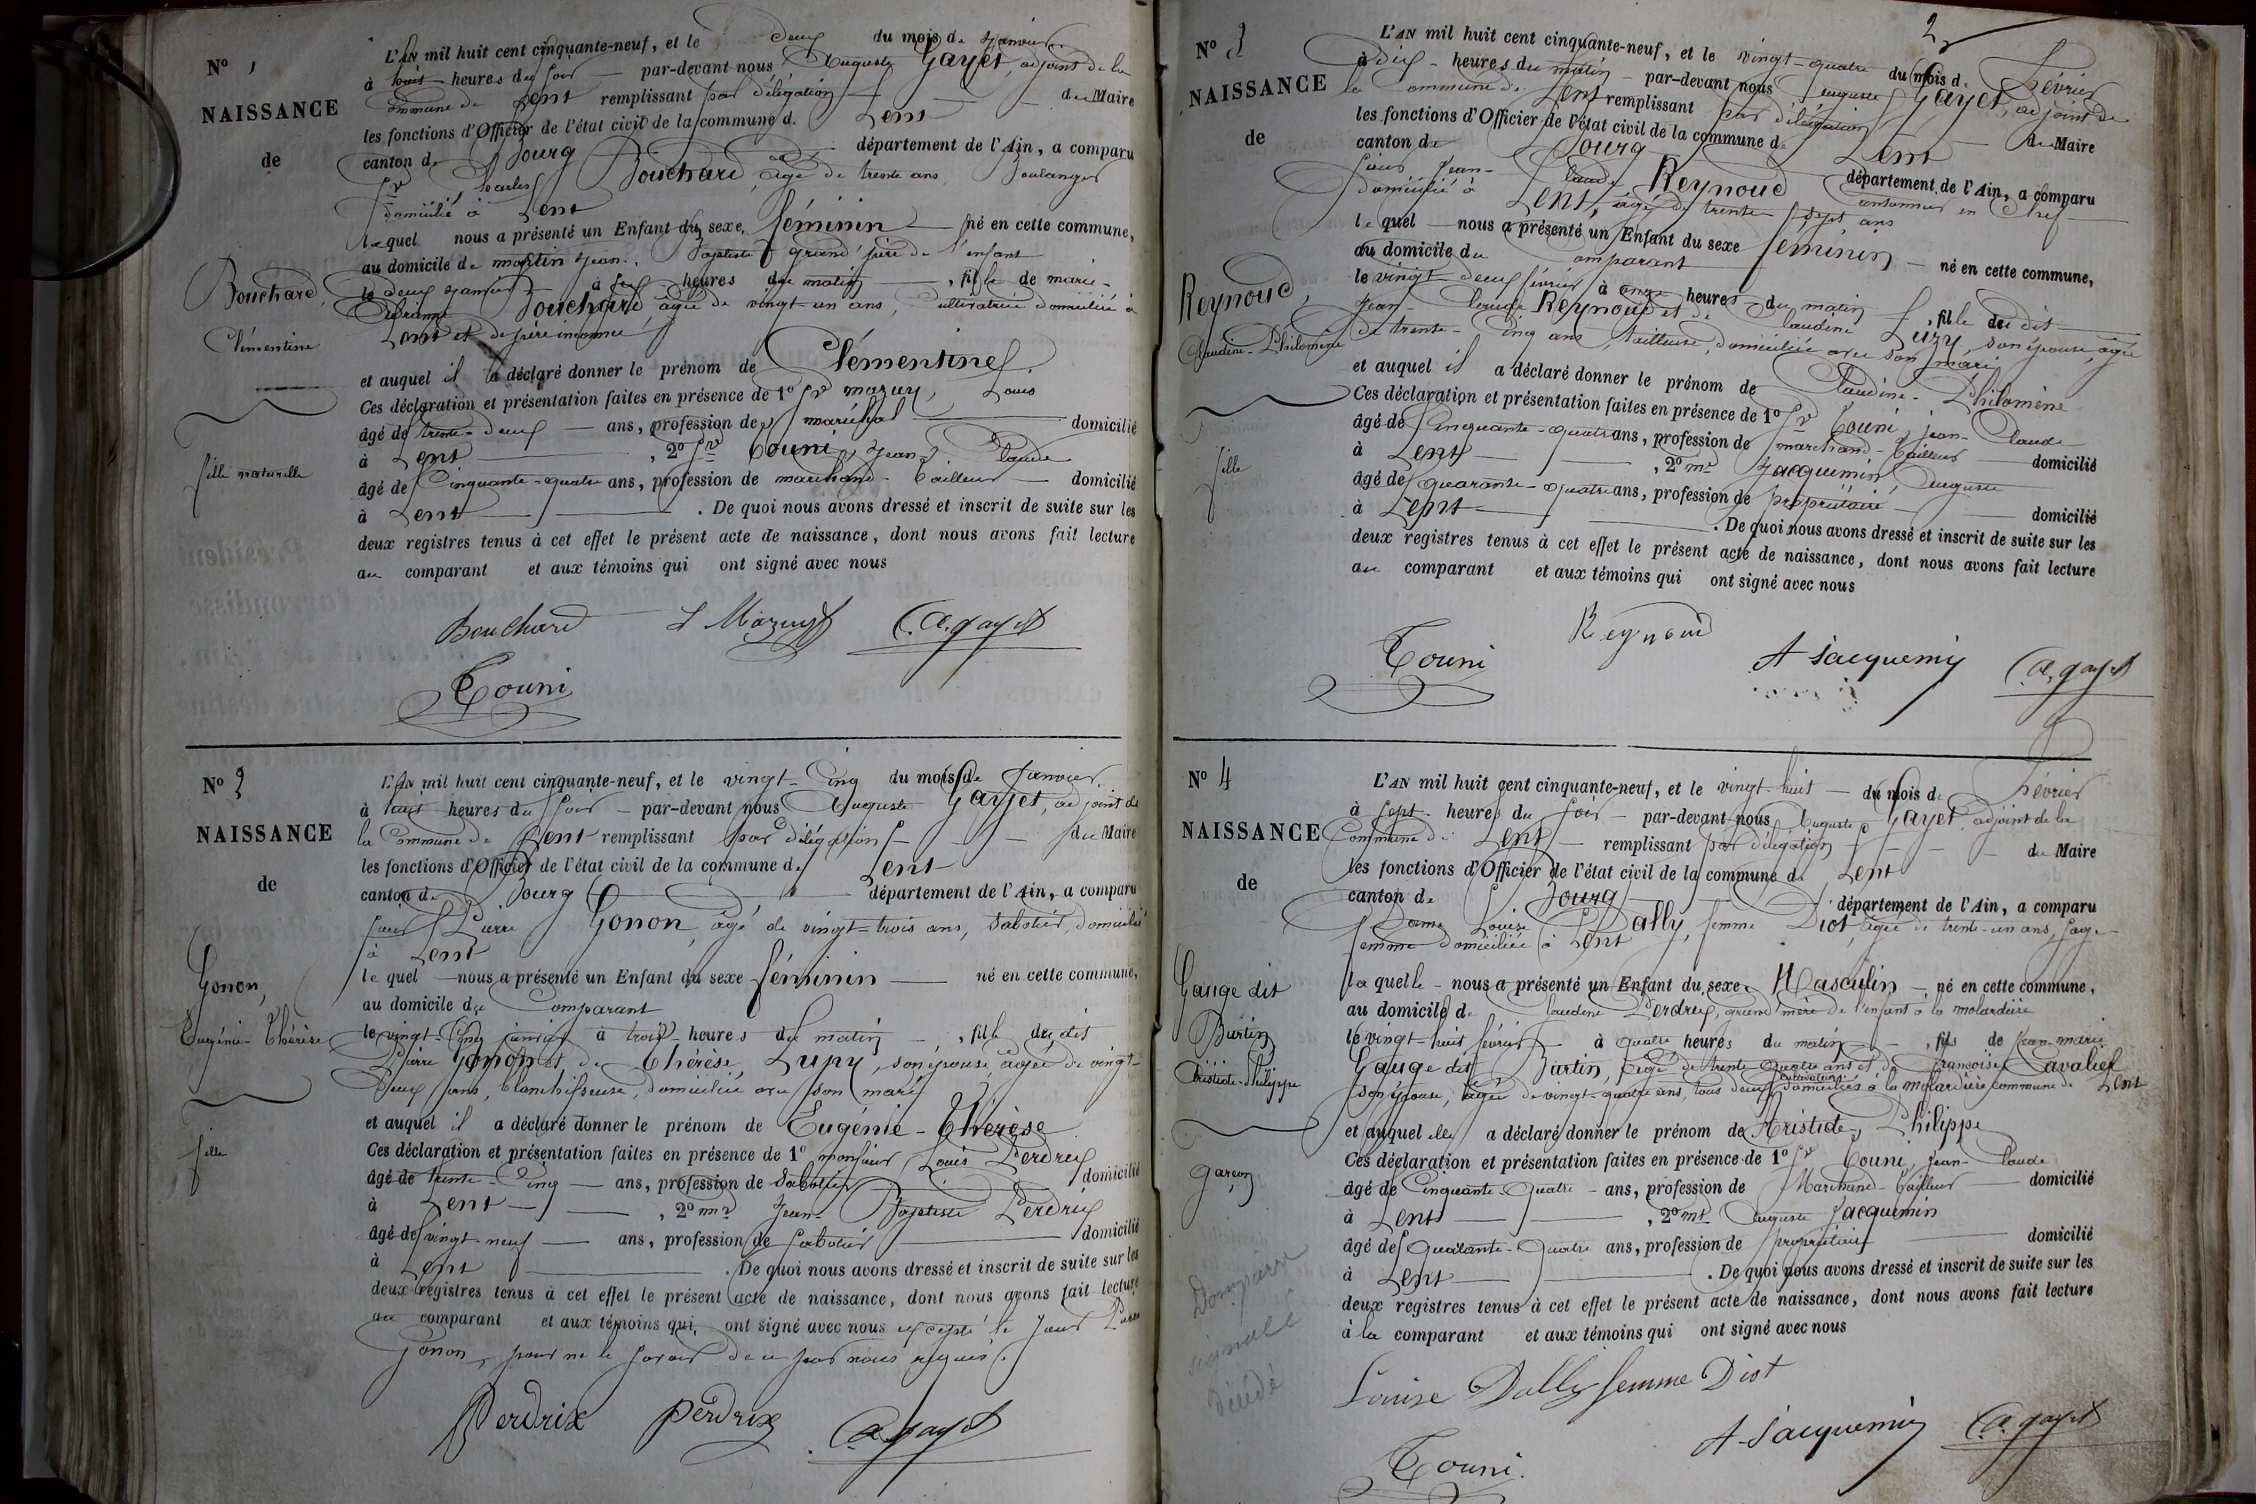 N° 1
NAISSANCE
de
Bouchard,
Clémentine
fille naturelle
L'AN mil huit cent cinquante-neuf, et le deux du mois de Janvier
à huit heures du soir par-devant nous Auguste Gayet, adjoint de la
commune de Lent remplissant par délégation du Maire
les fonctions d'Officier de l'état civil de la commune de Lent
canton de Bourg département de l'Ain, a comparu
Sr Charles Bouchard, âgé de trente ans, Boulanger
domicilié à Lent
lequel nous a présenté un Enfant du sexe féminin né en cette commune,
au domicile de martin Jean-Baptiste grand'père de l'enfant
le deux janvier à six heures du matin, fille de marie-
Bouchard, âgée de vingt-un ans, cultivatrice domiciliée à
Lent et de père inconnu
et auquel il a déclaré donner le prénom de Clémentine
Ces déclaration et présentation faites en présence de 1° Sr mazuy, Louis
âgé de trente-deux ans, profession de maréchal domicilié
à Lent, 2° Sr Touni, Jean Claude
âgé de Cinquante-quatre ans, profession de marchand-Tailleur domicilié
à Lent. De quoi nous avons dressé et inscrit de suite sur les
deux registres tenus à cet effet le présent acte de naissance, dont nous avons fait lecture
au comparant et aux témoins qui ont signé avec nous
Bouchard L Mazuy C. A. gayet
Touni
N° 2
NAISSANCE
de
Gonon,
Eugénie-Thérèse
fille
L'AN mil huit cent cinquante-neuf, et le vingt-Cinq du mois de Janvier
à huit heures du soir par-devant nous Auguste Gayet, adjoint de
la Commune de Lent remplissant par délégation du Maire
les fonctions d'Officier de l'état civil de la commune de Lent
canton de Bourg département de l'Ain, a comparu
sieur Pierre Gonon, âgé de vingt-trois ans, Sabotier, domicilié
à Lent
lequel nous a présenté un Enfant du sexe féminin né en cette commune,
au domicile du Comparant
le vingt-Cinq janvier à trois heures du matin, fille du dit
Pierre Gonon et de Thérèse Lupy, son épouse, âgée de vingt-
Deux ans, blanchisseuse, domiciliée avec son mari
et auquel il a déclaré donner le prénom de Eugénie-Thérèse
Ces déclaration et présentation faites en présence de 1° monsieur Louis Perdrix
âgé de trente-Cinq ans, profession de Sabotier domicilié
à Lent, 2° mr Jean-Baptiste Perdrix
âgé de vingt neuf ans, profession de Sabotier domicilié
à Lent. De quoi nous avons dressé et inscrit de suite sur les
deux registres tenus à cet effet le présent acte de naissance, dont nous avons fait lecture
au comparant et aux témoins qui ont signé avec nous excepté le sieur Pierre
Gonon, pour ne le savoir de ce par nous requis.
Perdrix perdrix C. A. gayet
2
N° 3
NAISSANCE
de
Reynoud,
Claudine-Philomène
fille
L'AN mil huit cent cinquante-neuf, et le vingt-quatre du mois de Février
à dix heures du matin par-devant nous Auguste Gayet, adjoint de
la Commune de Lent remplissant par délégation du Maire
les fonctions d'Officier de l'état civil de la commune de Lent
canton de Bourg département de l'Ain, a comparu
sieur Jean-Claude Reynoud cantonnier en Chef
domicilié à Lent, âgé de trente-sept ans
lequel nous a présenté un Enfant du sexe féminin né en cette commune,
au domicile du Comparant
le vingt-deux février à onze heures du matin, fille du dit
Jean-Claude Reynoud et de Claudine Luzy, son épouse, âgée
de trente-Cinq ans, tailleuse, domiciliée avec son mari
et auquel il a déclaré donner le prénom de Claudine-Philomène
Ces déclaration et présentation faites en présence de 1° Sr Touni, Jean-Claude
âgé de Cinquante-quatre ans, profession de marchand-Tailleur domicilié
à Lent, 2° mr Jacquemin Auguste
âgé de quarante-quatre ans, profession de propriétaire domicilié
à Lent. De quoi nous avons dressé et inscrit de suite sur les
deux registres tenus à cet effet le présent acte de naissance, dont nous avons fait lecture
au comparant et aux témoins qui ont signé avec nous
Reynoud
Touni A Jacquemin C. A. gayet
N° 4
NAISSANCE
de
Gauge dit
Burtin
Aristide-Philippe
garçon
L'AN mil huit cent cinquante-neuf, et le vingt-huit du mois de Février
à sept heures du soir par-devant nous Auguste Gayet, adjoint de la
Commune de Lent remplissant par délégation du Maire
les fonctions d'Officier de l'état civil de la commune de Lent
canton de Bourg département de l'Ain, a comparu
Dame Louise Dally, femme Diot, âgée de trente-un ans, sage-
femme domiciliée à Lent
laquelle nous a présenté un Enfant du sexe Masculin né en cette commune,
au domicile de Claudine Perdrix, grand'mère de l'enfant à la molardière
le vingt-huit février à quatre heures du matin, fils de Jean-marie
Gauge dit Burtin, âgé de trente quatre ans et de Françoise Cavalier
son épouse, âgée de vingt-quatre ans, tous deux cultivateurs domiciliés à la molardière commune de Lent
et auquel elle a déclaré donner le prénom de Aristide-Philippe
Ces déclaration et présentation faites en présence de 1° Sr Touni Jean-Claude
âgé de Cinquante-Quatre ans, profession de Marchand-Tailleur domicilié
à Lent, 2° mr Auguste Jacquemin
âgé de Quarante-Quatre ans, profession de propriétaire domicilié
à Lent. De quoi nous avons dressé et inscrit de suite sur les
deux registres tenus à cet effet le présent acte de naissance, dont nous avons fait lecture
à la comparant et aux témoins qui ont signé avec nous
Louise Dally femme Diot
A Jacquemin C. A. gayet
Touni